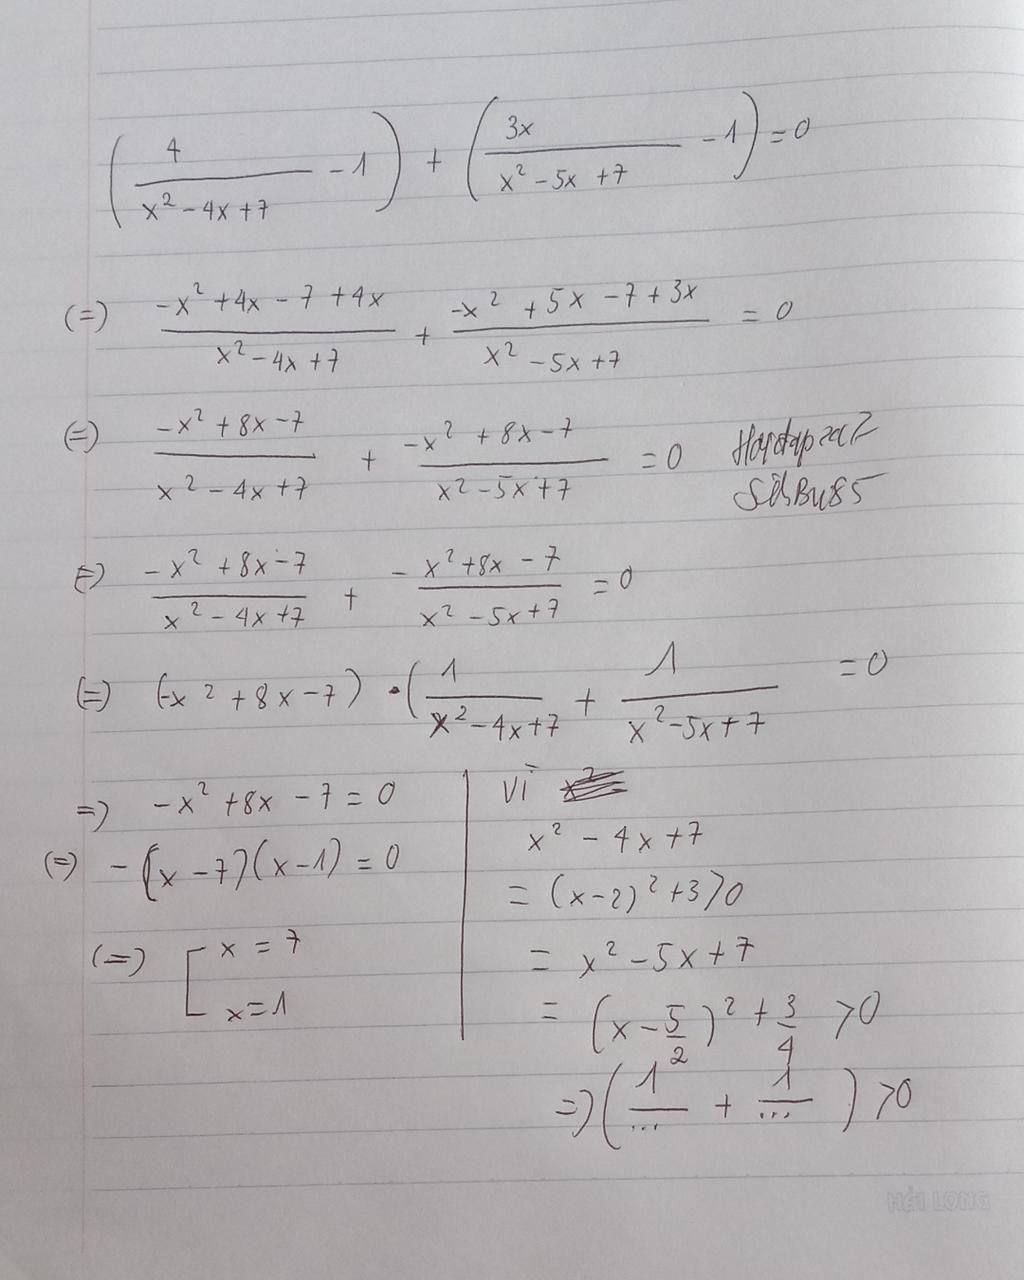 (4/(x² - 4x + 7) - 1) + (3x/(x² - 5x + 7) - 1) = 0
(=) (-x² + 4x - 7 + 4x)/(x² - 4x + 7) + (-x² + 5x - 7 + 3x)/(x² - 5x + 7) = 0
(=) (-x² + 8x - 7)/(x² - 4x + 7) + (-x² + 8x - 7)/(x² - 5x + 7) = 0
(=) (-x² + 8x - 7)/(x² - 4x + 7) + (-x² + 8x - 7)/(x² - 5x + 7) = 0
(=) (-x² + 8x - 7) • (1/(x² - 4x + 7) + 1/(x² - 5x + 7) = 0
=) -x² + 8x - 7 = 0
(=) -(x - 7)(x - 1) = 0
(=) [ x = 7
x = 1
vì
x² - 4x + 7
= (x - 2)² + 3 > 0
= x² - 5x + 7
= (x - 5/2)² + 3/4 > 0
=) (1/... + 1/...) > 0
HẢI LONG